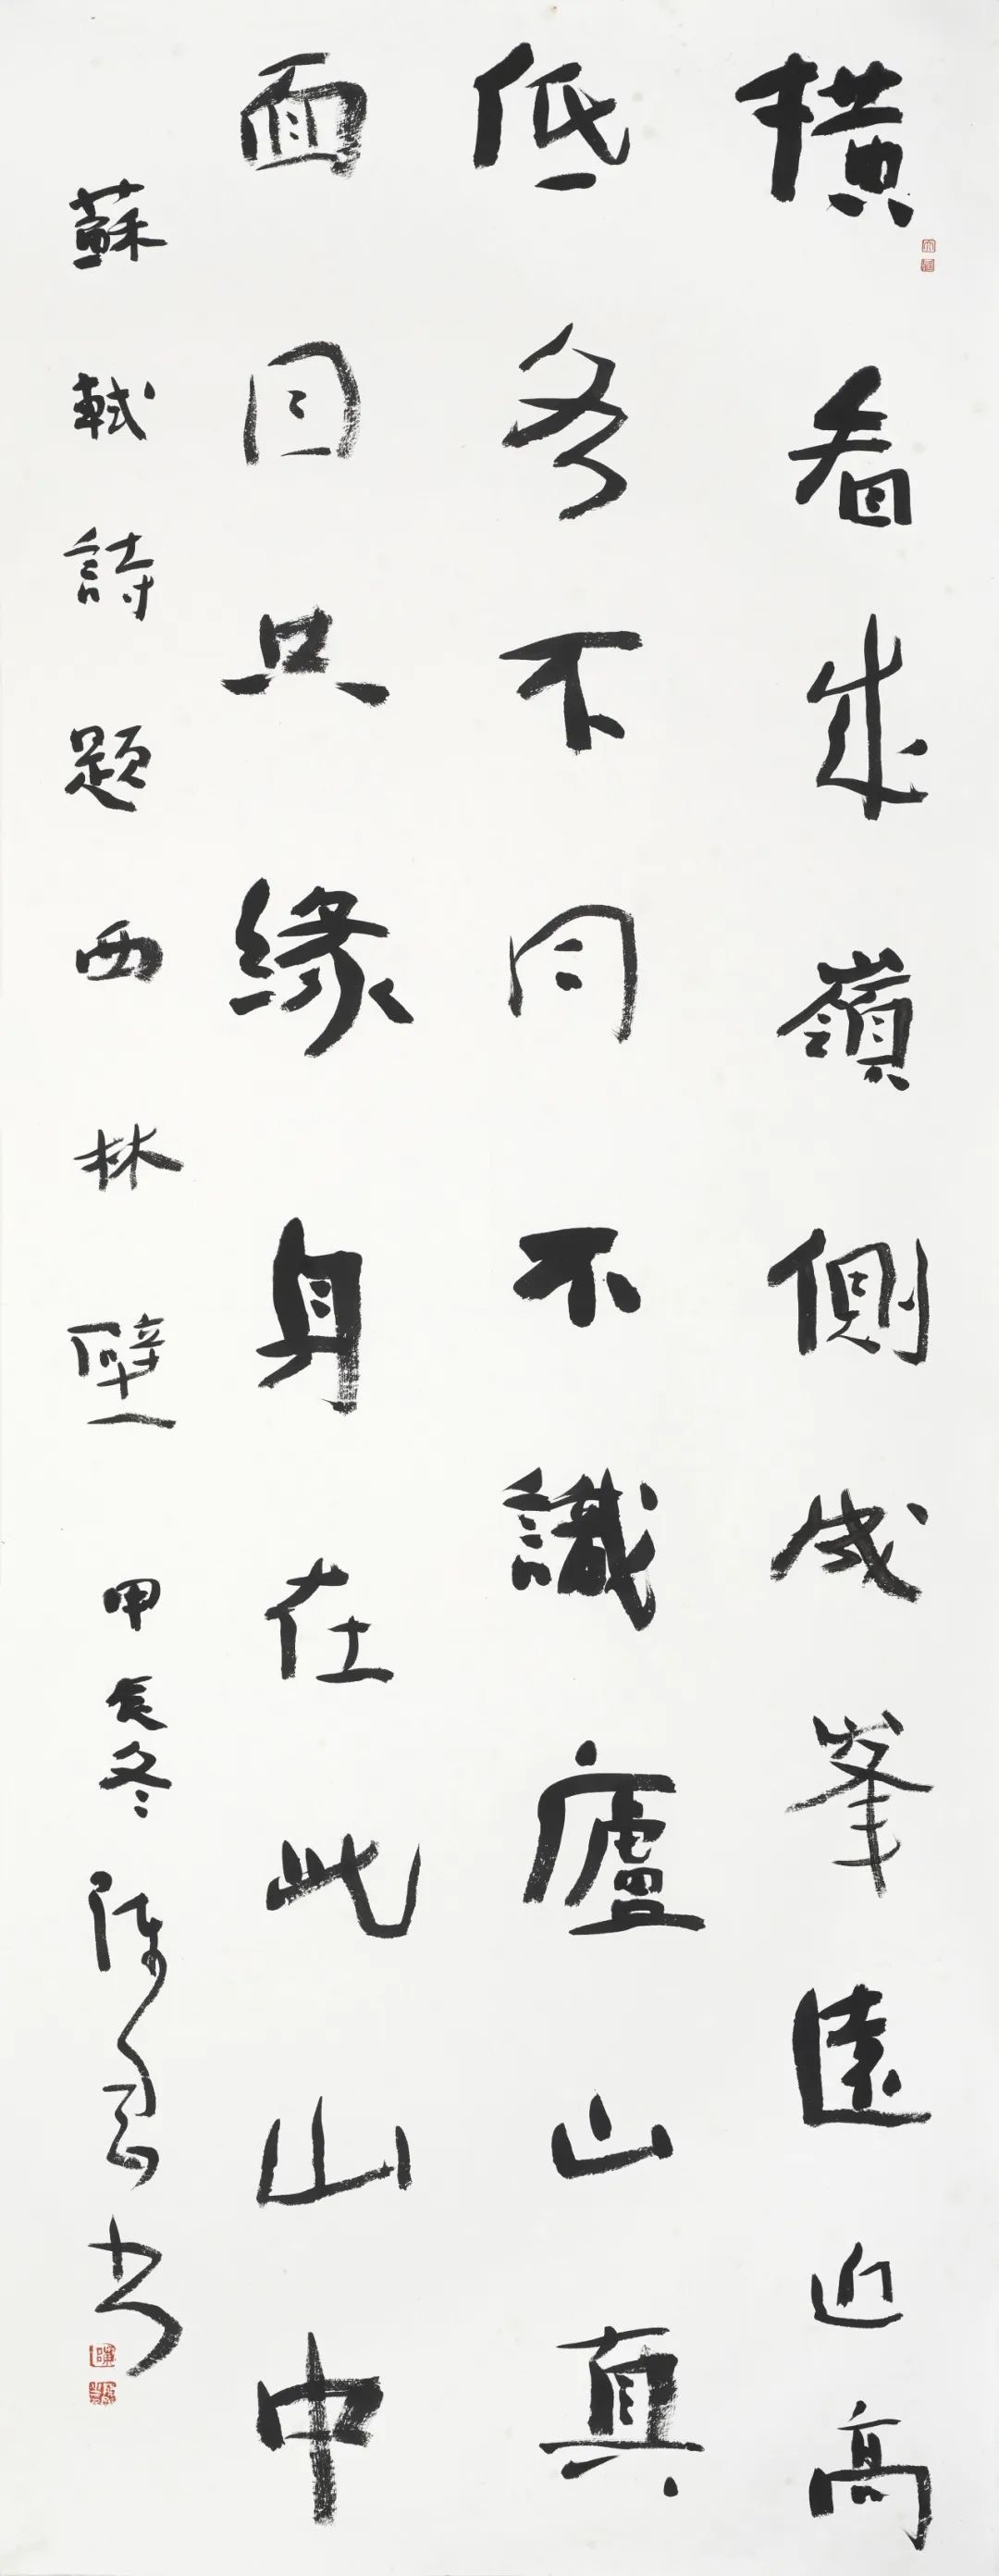 橫看成嶺側成峯遠近高
低各不同不識廬山真
面目只緣身在此山中
蘇軾詩題西林壁 甲辰冬 陳書